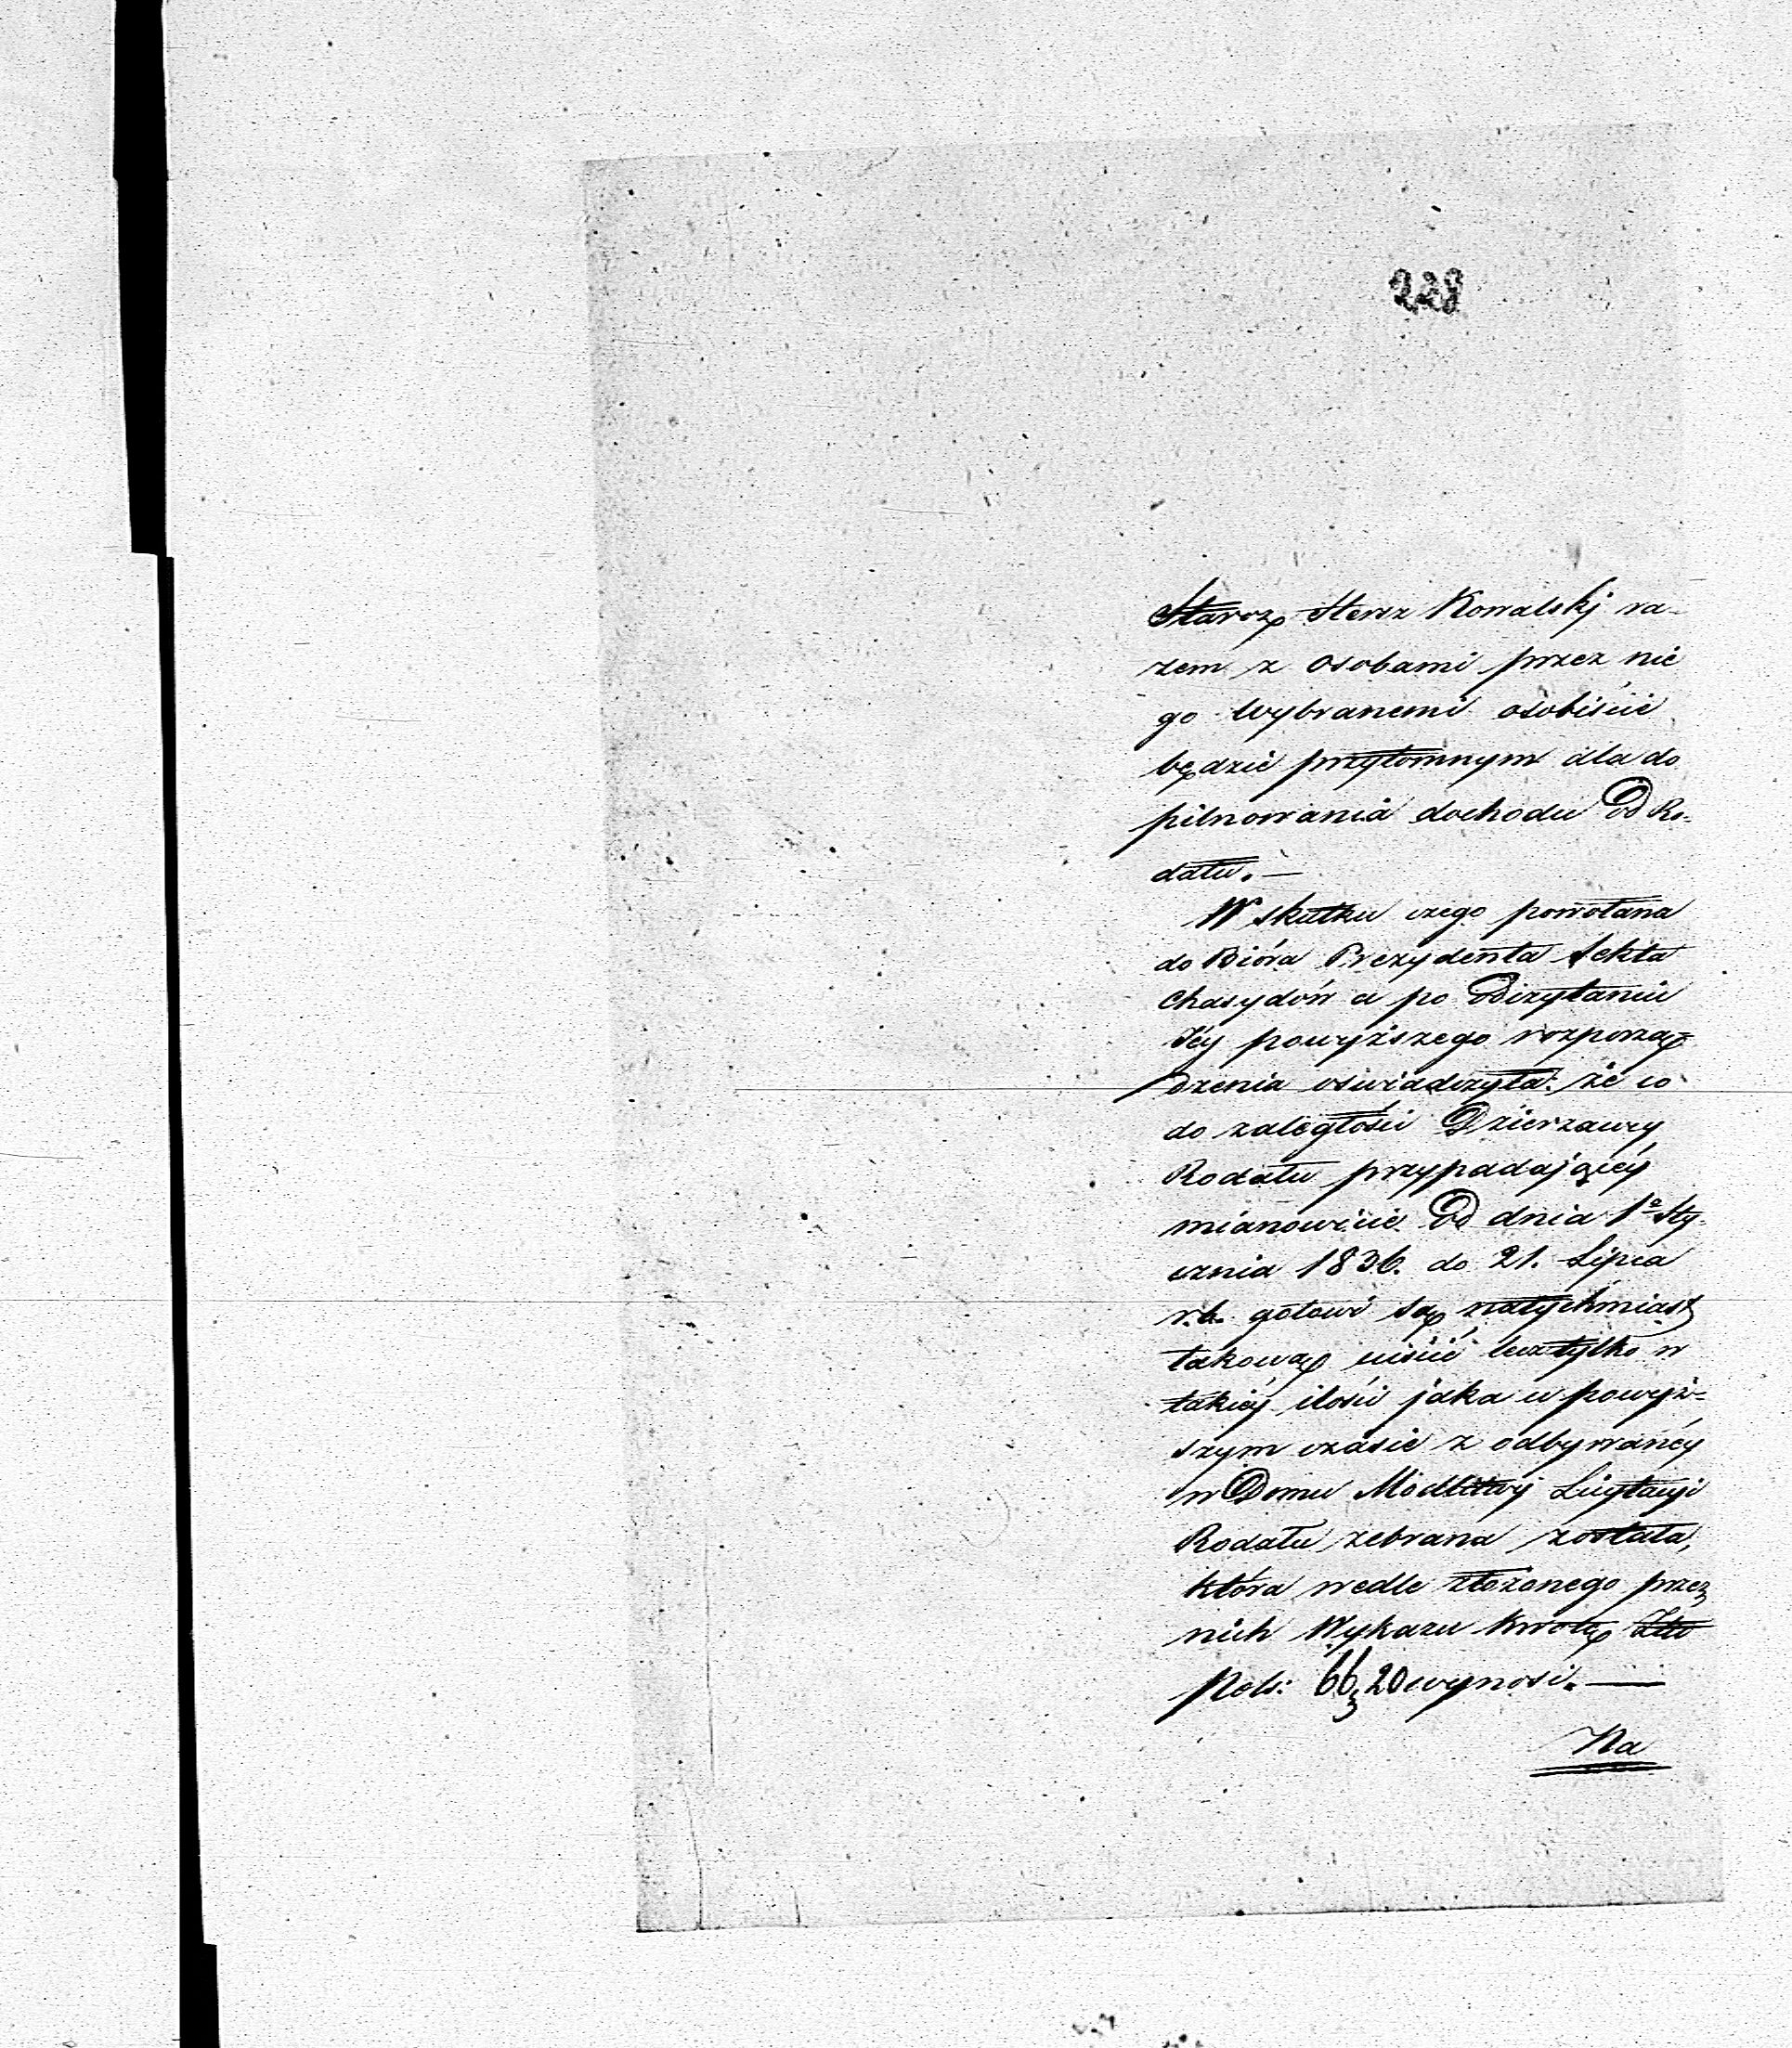 228
Staroz. Hersz Kowalskj ra-
zem z osobami przez nie
go wybranemi osobiście
będzie przytomnym dla do
pilnowania dochodu Od Ro-
dału. —
W skutku czego powołana
do Bióra Prezydenta Sekta
Chasydów a po Odczytaniu
Jéy powyższego rozporzą-
dzenia oświadczyła: że co
do zaległości Dzierzawy
Rodału przypadającéy
mianowicie Od dnia 1º Sty-
cznia 1836. do 21. Lipca
r.b. gotowi są natychmiast
takową uiścić lecz tylko w
takiéy ilości jaka w powyż-
szym czasie z odbywanéy
w Domu Modlitwy Licytacyi
Rodału zebrana została,
która wedle złożonego przez
nich Wykazu kwotę Złto
Pols: 66,20 wynosi. —
Na